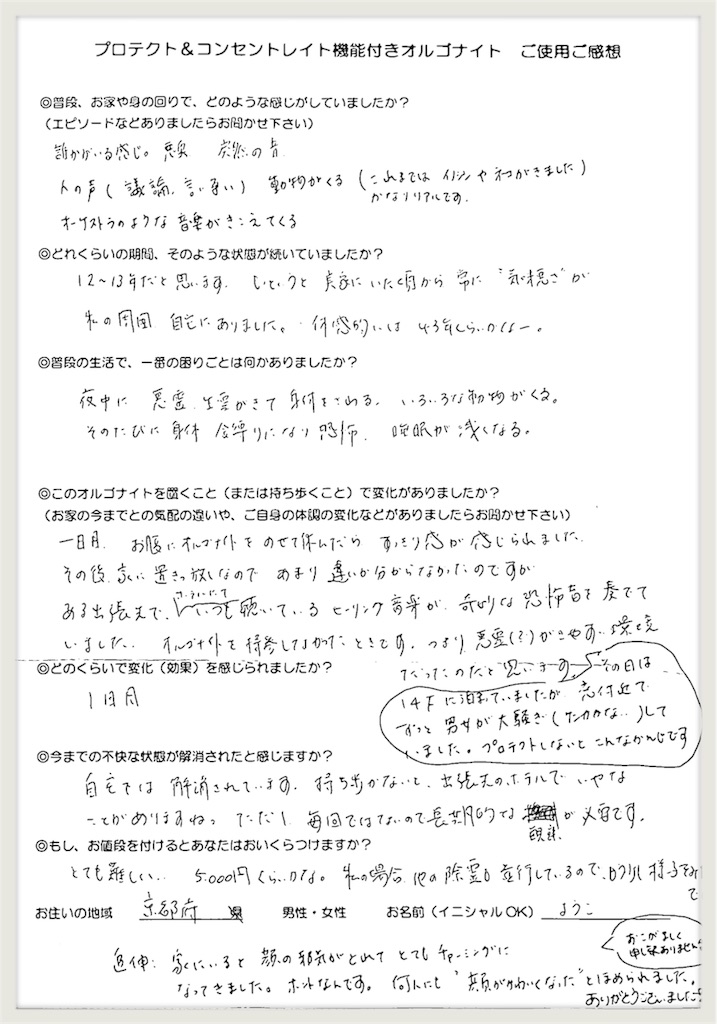 プロテクト＆コンセントレイト機能付きオルゴナイト　ご使用ご感想
◎普段、お家や身の回りで、どのような感じがしていましたか？
（エピソードなどありましたらお聞かせ下さい）
誰かがいる感じ。悪臭　突然の音
人の声（議論、言い争い）　動物がくる（これまではイノシシやネコがきました）
かなりリアルです。
オーケストラのような音楽がきこえてくる
◎どれくらいの期間、そのような状態が続いていましたか？
12～13年だと思います。というと実家にいた頃から常に“気穏ざ”が
私の周囲、自宅にありました。体感的には43年くらいかなー。
◎普段の生活で、一番の困りごとは何かありましたか？
夜中に　悪霊、生霊がきて　身体をさわる、いろいろな動物がくる。
そのたびに身体　金縛りになり恐怖、睡眠が浅くなる。
◎このオルゴナイトを置くこと（または持ち歩くこと）で変化がありましたか？
（お家の今までとの気配の違いや、ご自身の体調の変化などがありましたらお聞かせ下さい）
一日目、お腹にオルゴナイトをのせて休んだら　すっきり感が感じられました。
その後、家に置きっ放しなので　あまり違いが分からなかったのですが
ある出張先で、いつも聴いているヒーリング音楽が、奇妙な恐怖音を奏でて
いました。オルゴナイトを持参しなかったときです。つまり悪霊(?)がきやすい環境
だったのだと思います。
その日は
14Fに泊まっていましたが、窓付近で
ずっと男女が大騒ぎ（ケンカかな..）して
いました。プロテクトしないとこんなかんじです
◎どのくらいで変化（効果）を感じられましたか？
1日目
◎今までの不快な状態が解消されたと感じますか？
自宅では解消されています。持ち歩かないと、出張先のホテルでいやな
ことがありますねっ　ただし、毎回ではないので長期的な
が必要です。
◎もし、お値段を付けるとあなたはおいくらつけますか？
とても難しい..　5.000円くらいかな。私の場合、他の除霊も並行しているので、もう少し様子をみ
で
お住いの地域　京都府　県　男性・女性　お名前（イニシャルOK）　ようこ
おこがましく
申し訳ありません
追伸：家にいると顔の邪気がとれてとてもチャーミングに
なってきました。ホントなんです。何人にも“顔がかわいくなった”とほめられました。
ありがとうございました